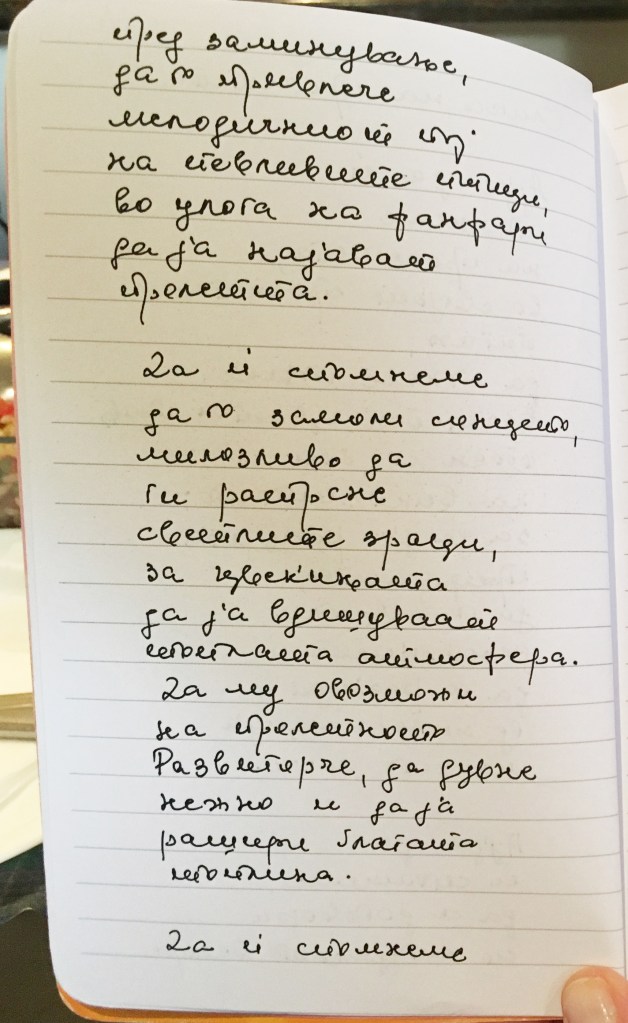 пред заминување,
да го привлече
мелодичниот пој
на певливците птици,
во улога на фанфари
да ја најават
пролетта.
Да ѝ спомнеме
да го замоли сонцето,
милозливо да
ги растрсне
светлите зраци,
за цвеќињата
да ја вдишуваат
топлата атмосфера.
Да му овозможи
на пролетното
Разветарче, да дувне
нежно и да ја
рашири благата
топлина.
Да ѝ спомнеме